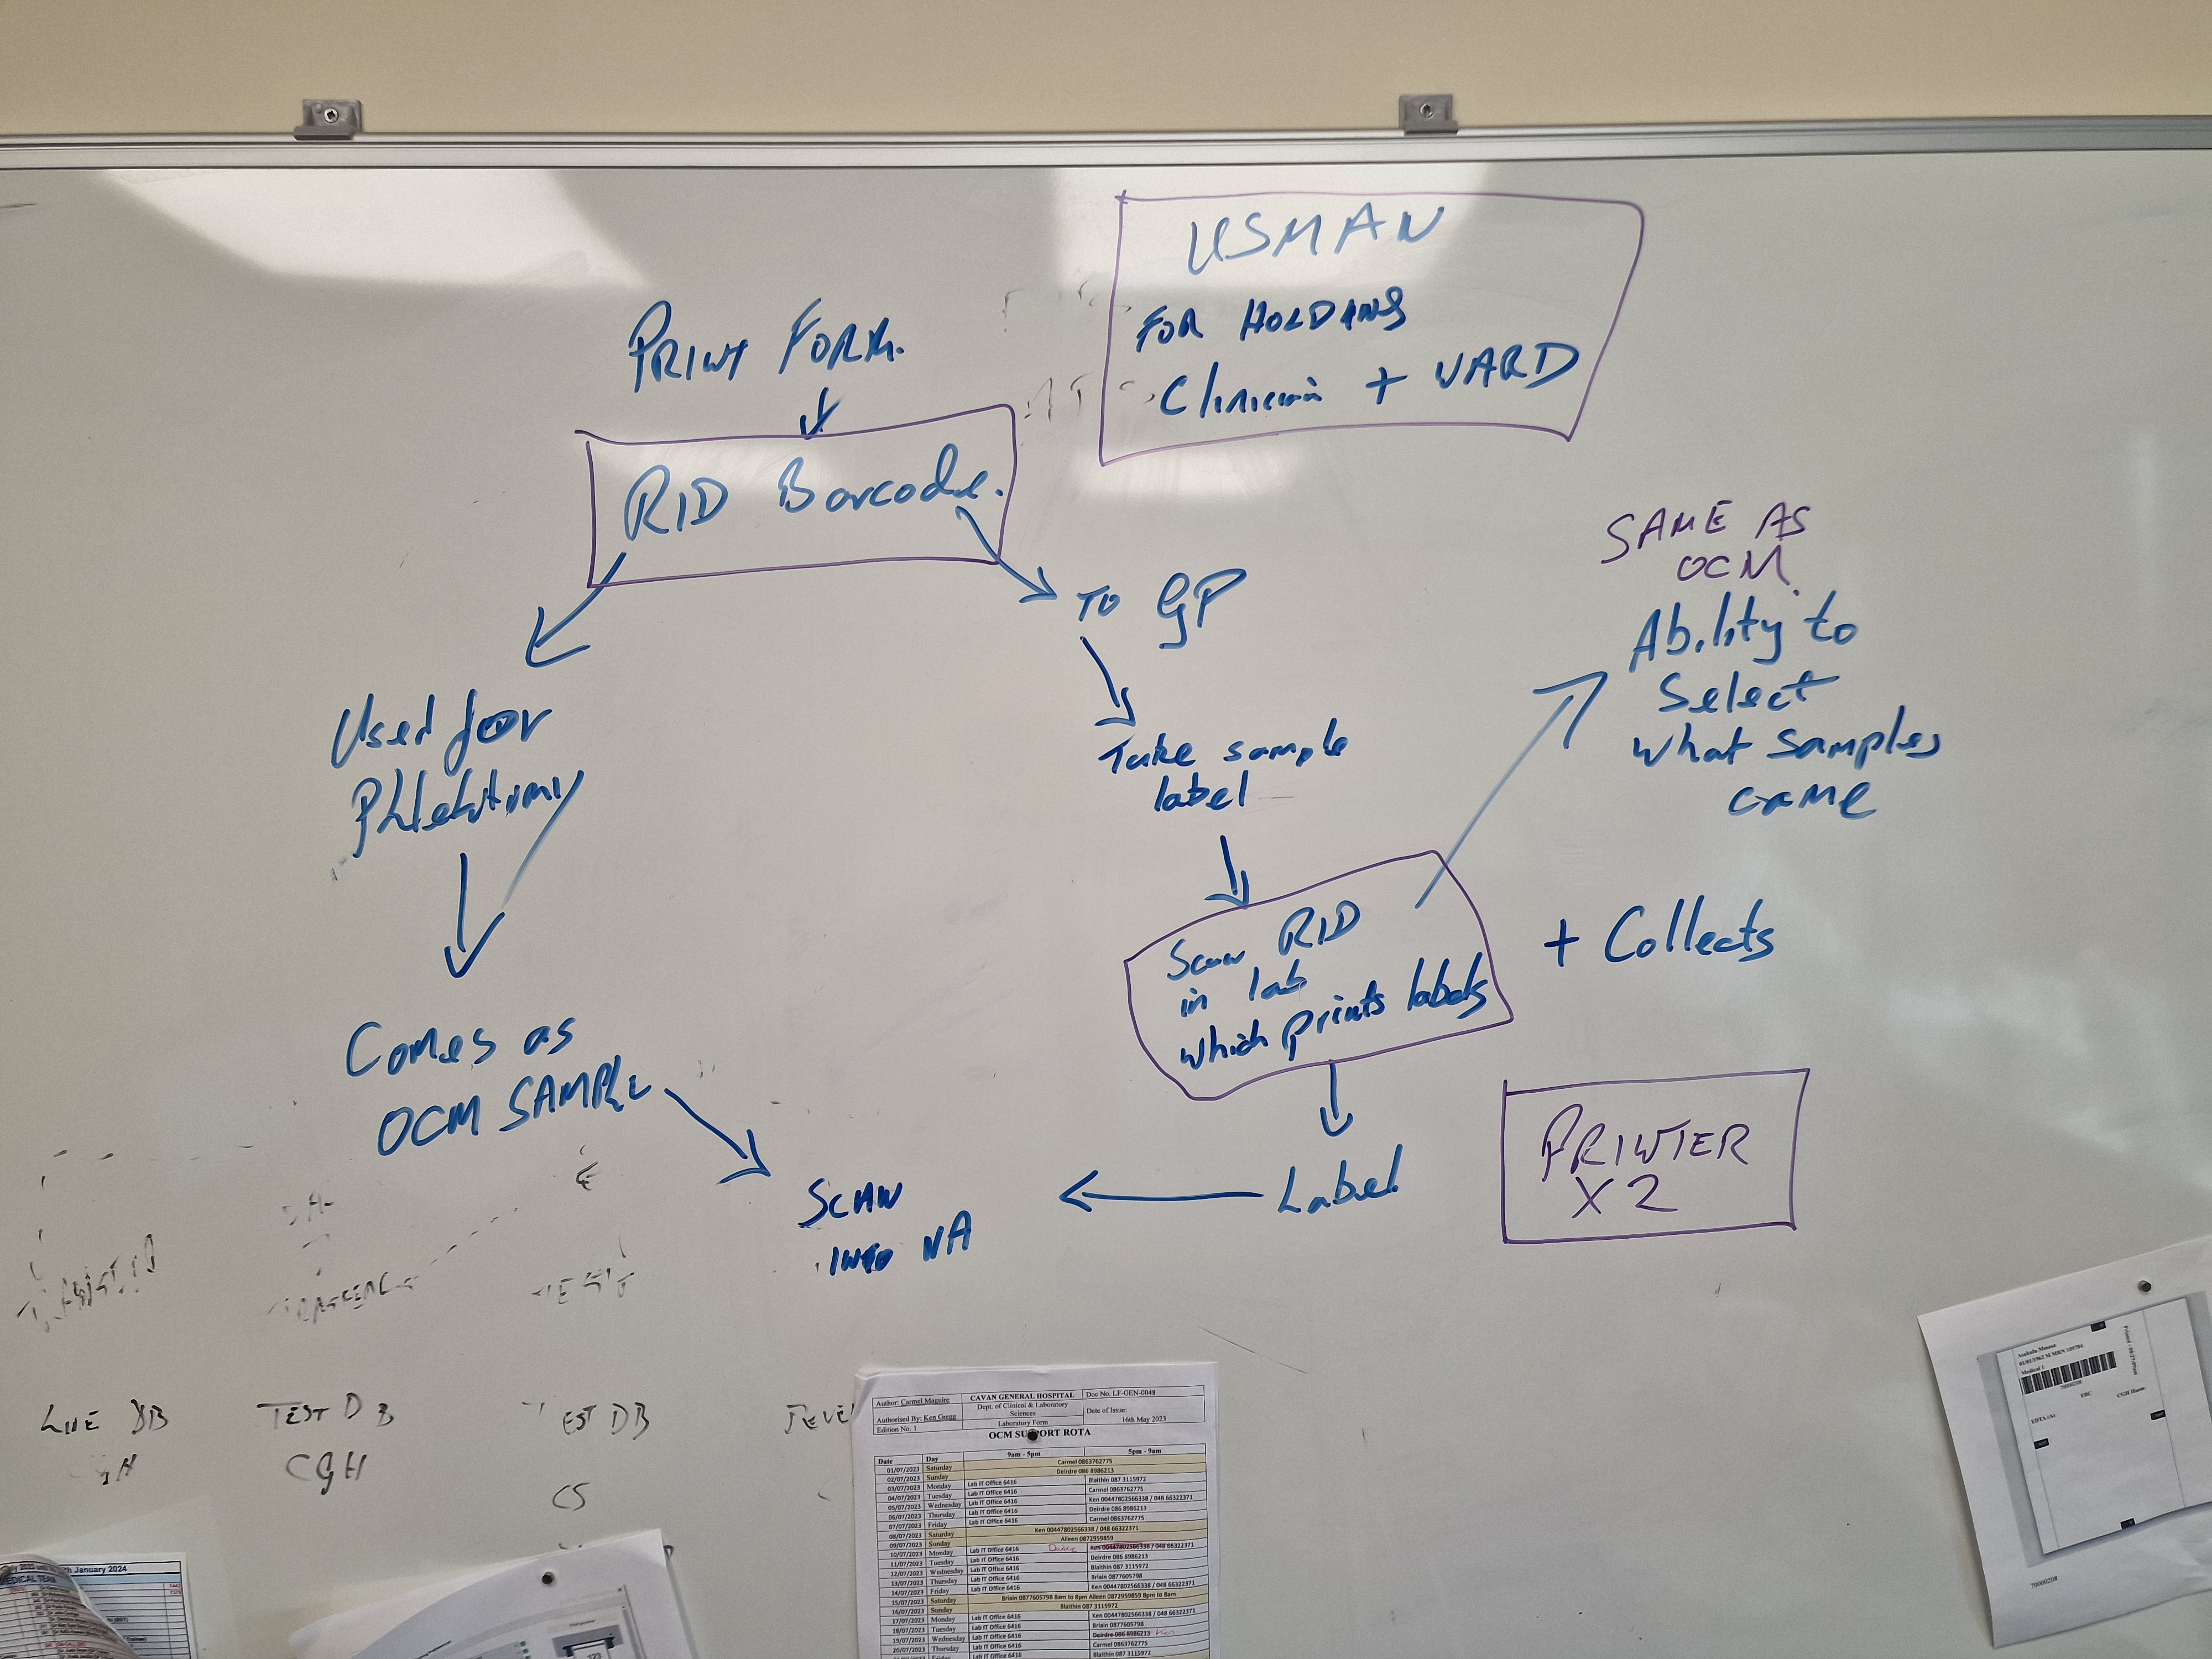 USMAN
FOR HOLDING
Clinician + WARD
PRINT FORM.
RID Barcode.
SAME AS
OCM
TO GP
Ability to
Select
what samples
came
Used for
Phlebotomy
Take sample
label
Scan RID
in lab
which prints labels
+ Collects
Comes as
OCM SAMPLE
PRINTER
X 2
Label
SCAN
INTO NA
LIVE DB
TEST DB
CGH
EST DB
CS
DEVEL
Author: Carmel Maguire
CAVAN GENERAL HOSPITAL
Doc No. LF-GEN-0048
Dept. of Clinical & Laboratory
Sciences
Authorised By: Ken Gregg
Date of Issue:
16th May 2023
Edition No. 1
Laboratory Form
OCM SUPPORT ROTA
Date Day 9am - 5pm 5pm - 9am
01/07/2023 Saturday Carmel 0863762775
02/07/2023 Sunday Deirdre 086 8986213
03/07/2023 Monday Lab IT Office 6416 Blaithin 087 3115972
04/07/2023 Tuesday Lab IT Office 6416 Carmel 0863762775
05/07/2023 Wednesday Lab IT Office 6416 Ken 00447802566338 / 048 66322371
06/07/2023 Thursday Lab IT Office 6416 Deirdre 086 8986213
07/07/2023 Friday Lab IT Office 6416 Carmel 0863762775
08/07/2023 Saturday Ken 00447802566338 / 048 66322371
09/07/2023 Sunday Aileen 0872959859
10/07/2023 Monday Lab IT Office 6416 Ken 00447802566338 / 048 66322371
11/07/2023 Tuesday Lab IT Office 6416 Deirdre 086 8986213
12/07/2023 Wednesday Lab IT Office 6416 Blaithin 087 3115972
13/07/2023 Thursday Lab IT Office 6416 Briain 0877605798
14/07/2023 Friday Lab IT Office 6416 Ken 00447802566338 / 048 66322371
15/07/2023 Saturday Briain 0877605798 8am to 8pm Aileen 0872959859 8pm to 8am
16/07/2023 Sunday Blaithin 087 3115972
17/07/2023 Monday Lab IT Office 6416 Carmel 0863762775
18/07/2023 Tuesday Lab IT Office 6416 Briain 0877605798
19/07/2023 Wednesday Lab IT Office 6416 Deirdre 086 8986213 Ken
20/07/2023 Thursday Lab IT Office 6416 Carmel 0863762775
Friday Lab IT Office 6416 Blaithin 087 3115972
January 2024
MEDICAL TEAM
01/01/1962 M MRN 109784
Medical 1
70000208
FBC
EDTA (A)
70000208